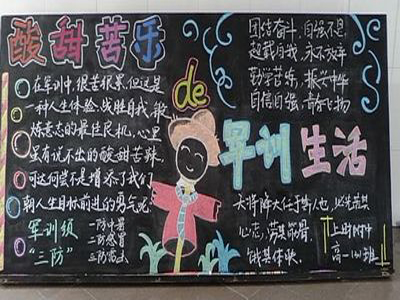 酸甜苦乐
de
军训生活
在军训中，很苦很累，但这是
一种人生体验，战胜自我，锻
炼意志的最佳良机，心里
虽有说不出的酸甜苦辣，
可这何尝不是增添了我们
朝人生目标前进的勇气呢。
军训级
“三防”
一防中暑
二防感冒
三防雷击
团结奋斗，自强不息
超越自我，永不放弃
勤学苦练，振兴中华
自信自强，青春飞扬
天将降大任于斯人也，必先苦其
心志，劳其筋骨，
饿其体肤
上财附中
高一
班